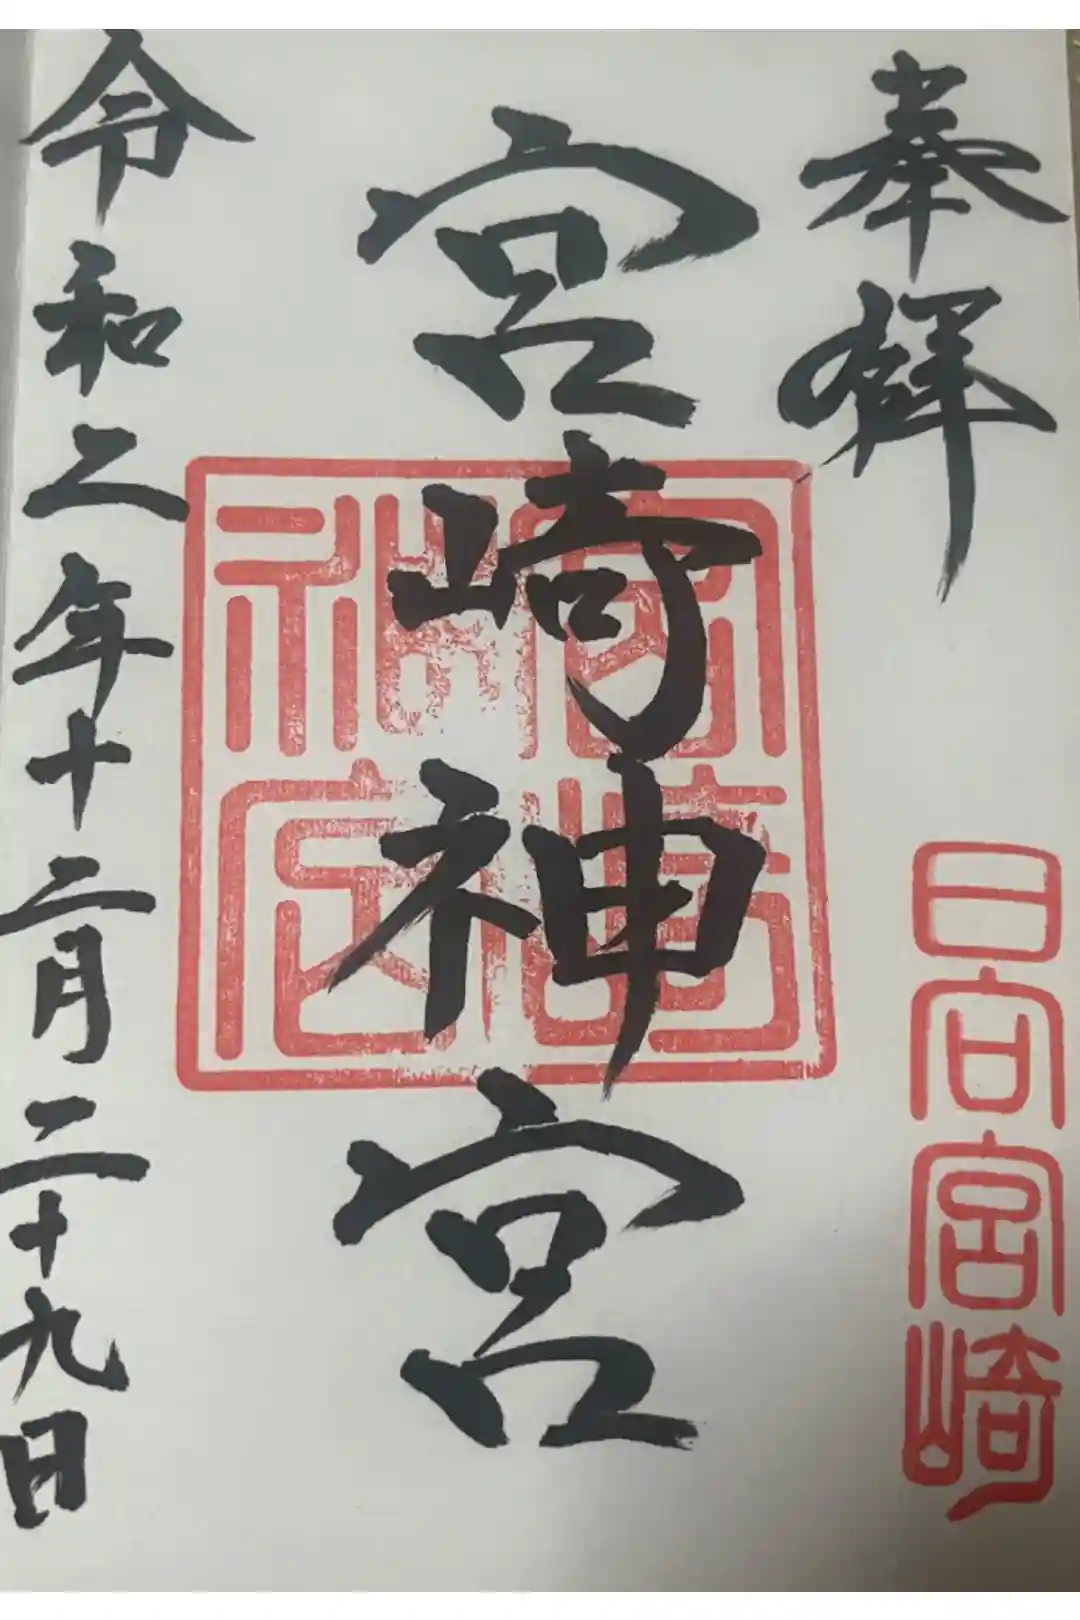 奉拝
日向宮崎
宮崎神宮
宮崎神宮
令和二年十二月二十九日